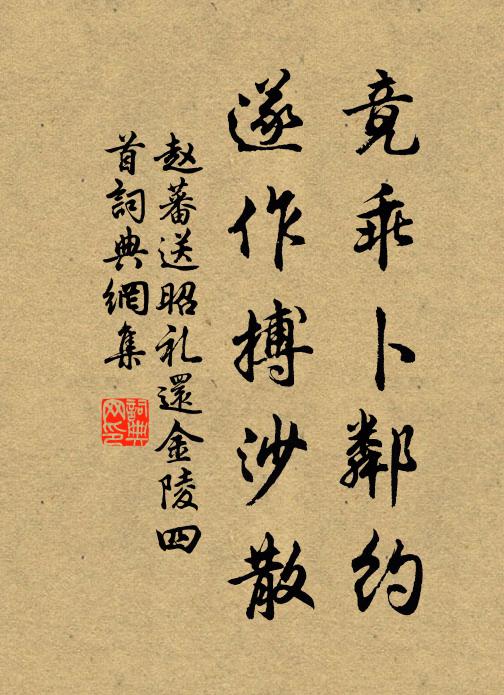 竟乖卜鄰約
遂作摶沙散
赵蕃送昭礼還金陵四
首詞典網集
詞典网印